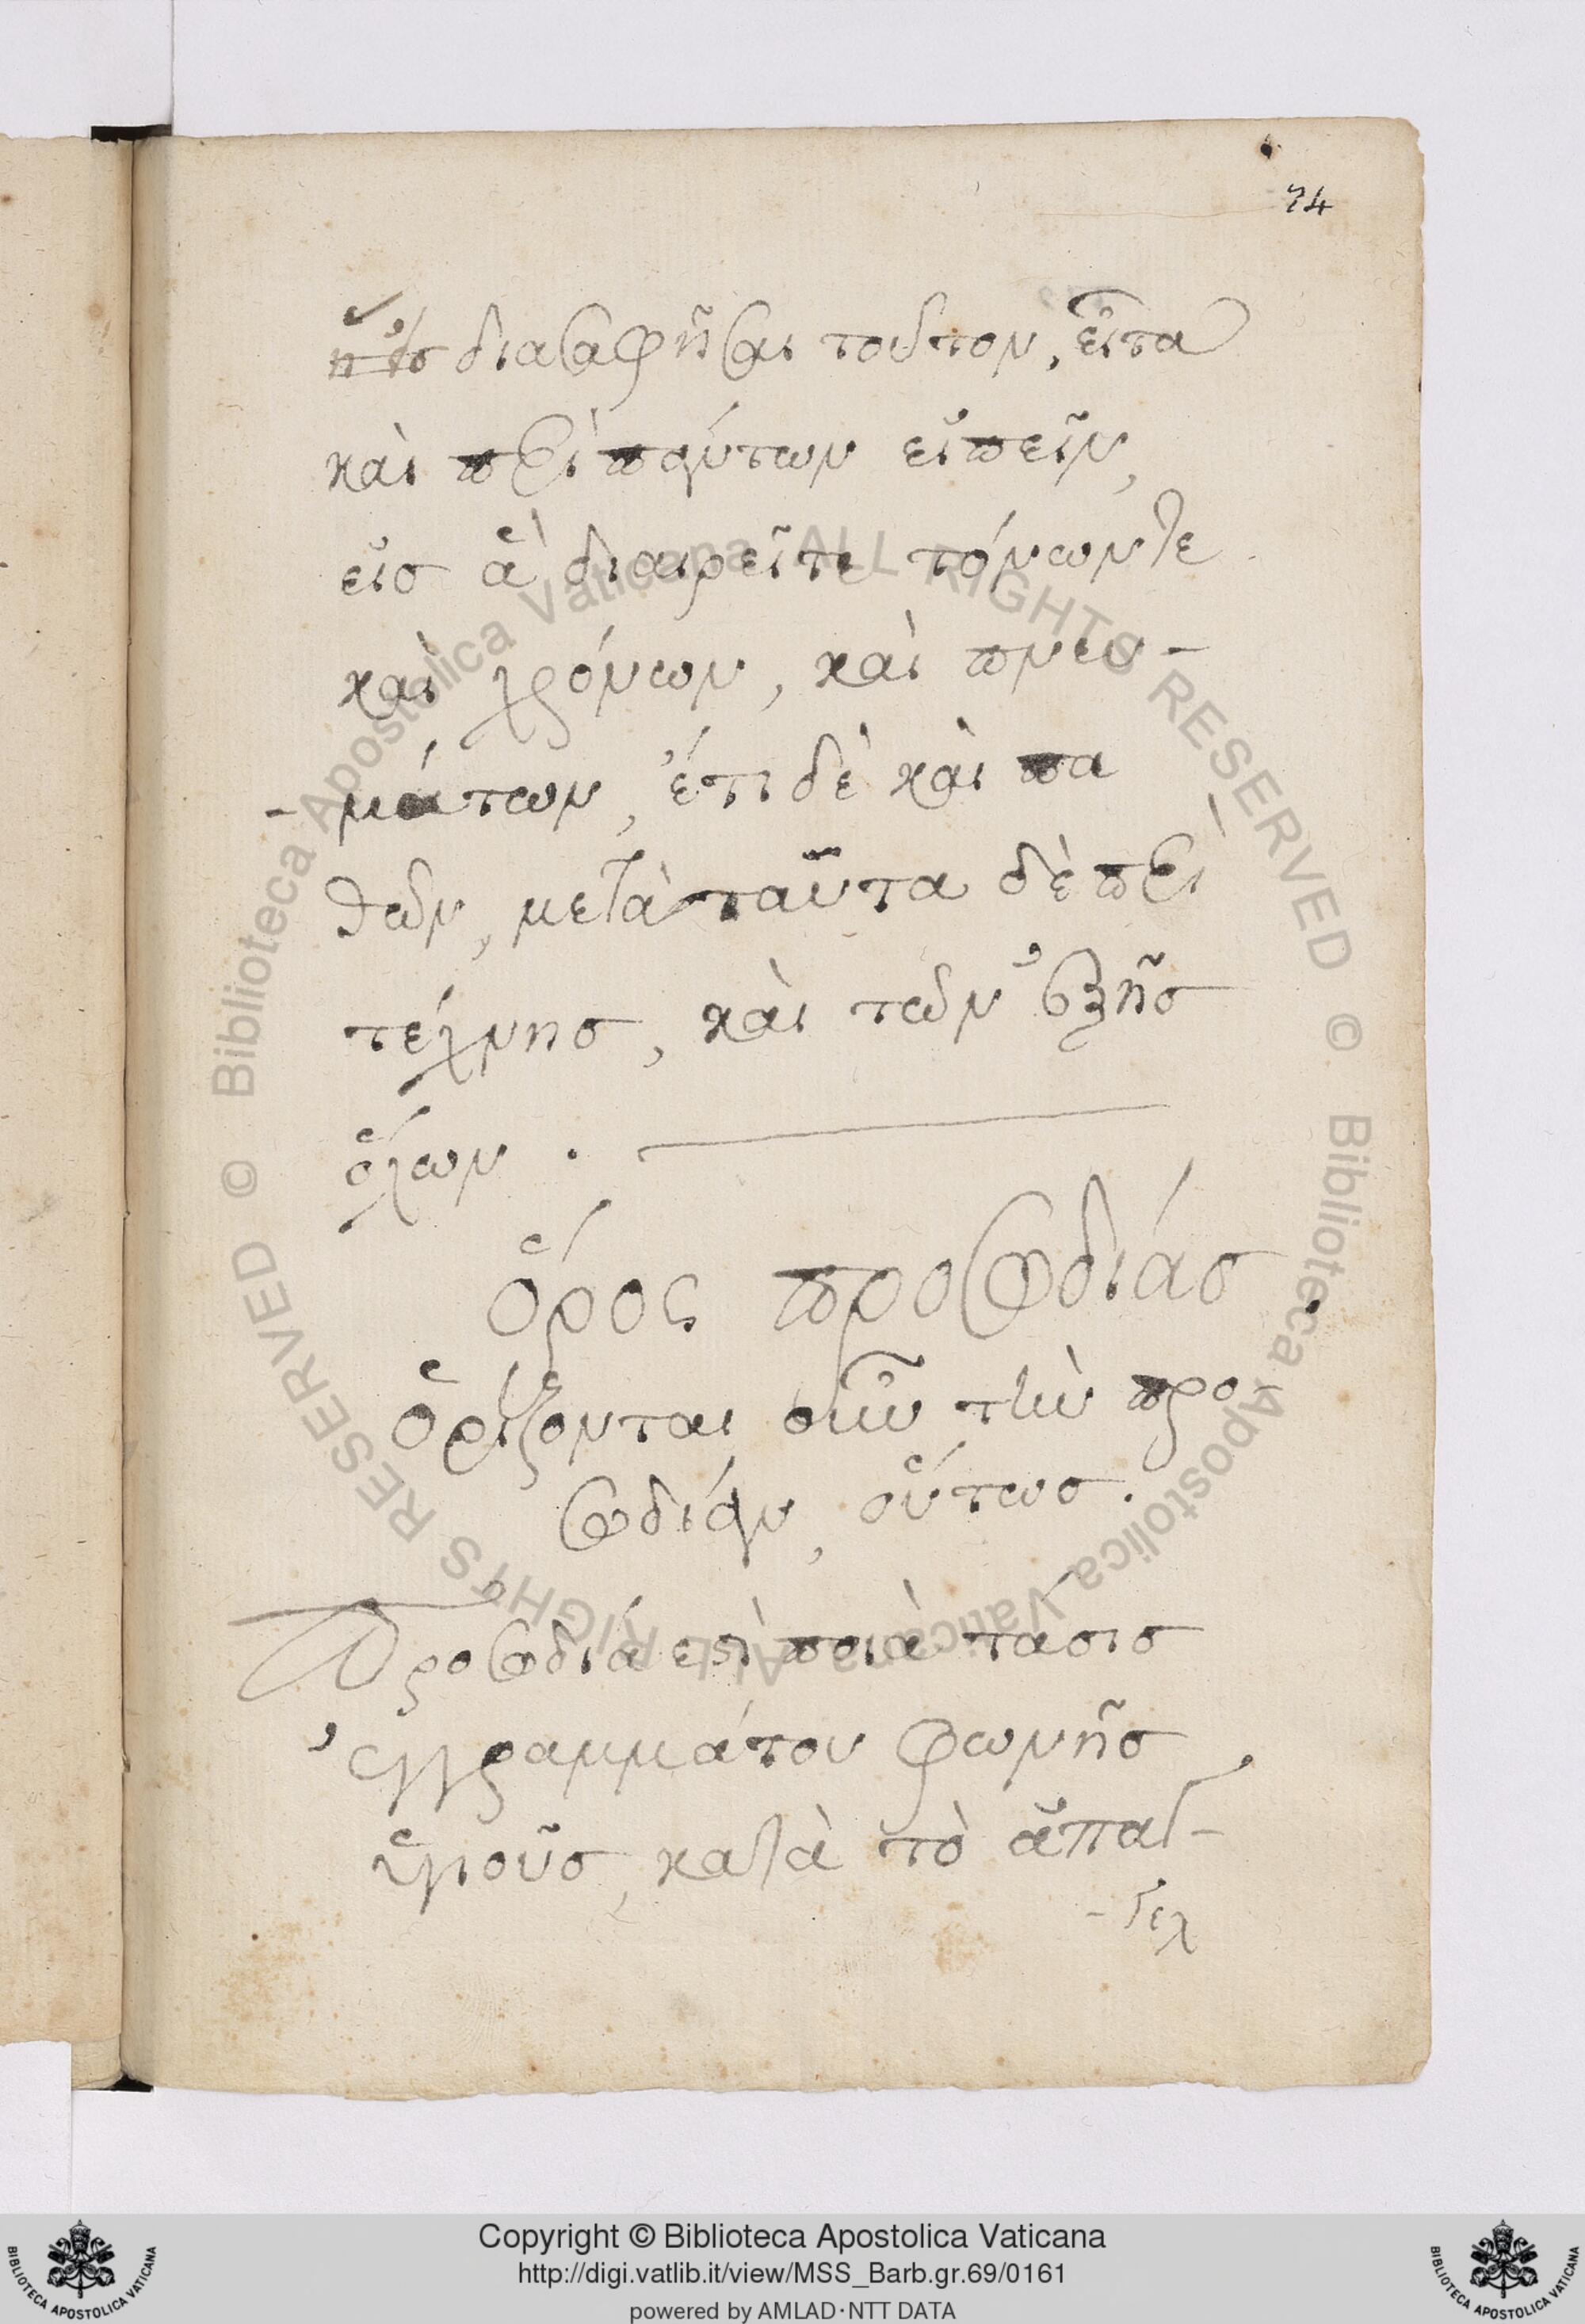 74
διασαφῆσαι τοῦτον, εἶτα
καὶ περὶ πάντων εἰπεῖν,
εἰσ ἃ διαιρεῖτε τόνωντε
καὶ χρόνων, καὶ πνευ-
-μάτων, ἔτι δὲ καὶ πα
θῶν, μετὰ ταῦτα δὲ περὶ
τέχνησ, καὶ τῶν ἑξῆσ
ὅλων.
ὅρος προσῳδιάσ.
ὁρίζονται οὖν τὴν προ-
σῳδίαν, οὕτωσ.
Προσῳδιά εστὶ ποιὰ τασισ
ἐγγραμμάτου φωνῆσ.
ὑγιοῦσ, κατὰ τὸ ἀπαγ-
-γελ
Copyright © Biblioteca Apostolica Vaticana
http://digi.vatlib.it/view/MSS_Barb.gr.69/0161
powered by AMLAD·NTT DATA
BIBLIOTECA APOSTOLICA VATICANA
BIBLIOTECA APOSTOLICA VATICANA
© Biblioteca Apostolica Vaticana ALL RIGHTS RESERVED
© Biblioteca Apostolica Vaticana ALL RIGHTS RESERVED